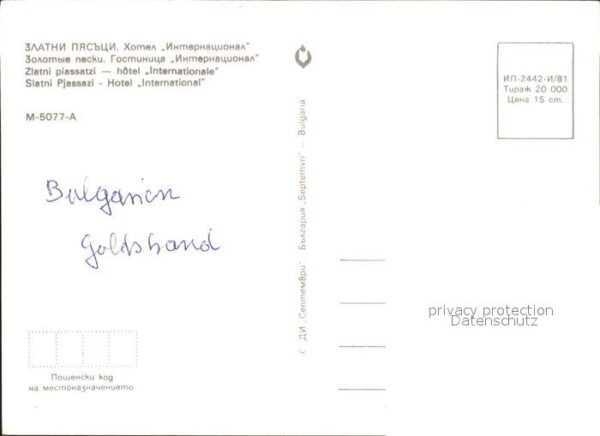 ЗЛАТНИ ПЯСЪЦИ. Хотел „Интернационал"
Золотые пески. Гостиница „Интернационал"
Zlatni piassatzi — hôtel „Internationale"
Slatni Pjassazi - Hotel „International"
М-5077-А
Bulgarien
Goldstrand
Пощенски код
на местоназначението
с ДИ „Септември" България „Septemvri" — Bulgaria
ИП-2442-И/81
Тираж 20 000
Цена 15 ст.
privacy protection
Datenschutz